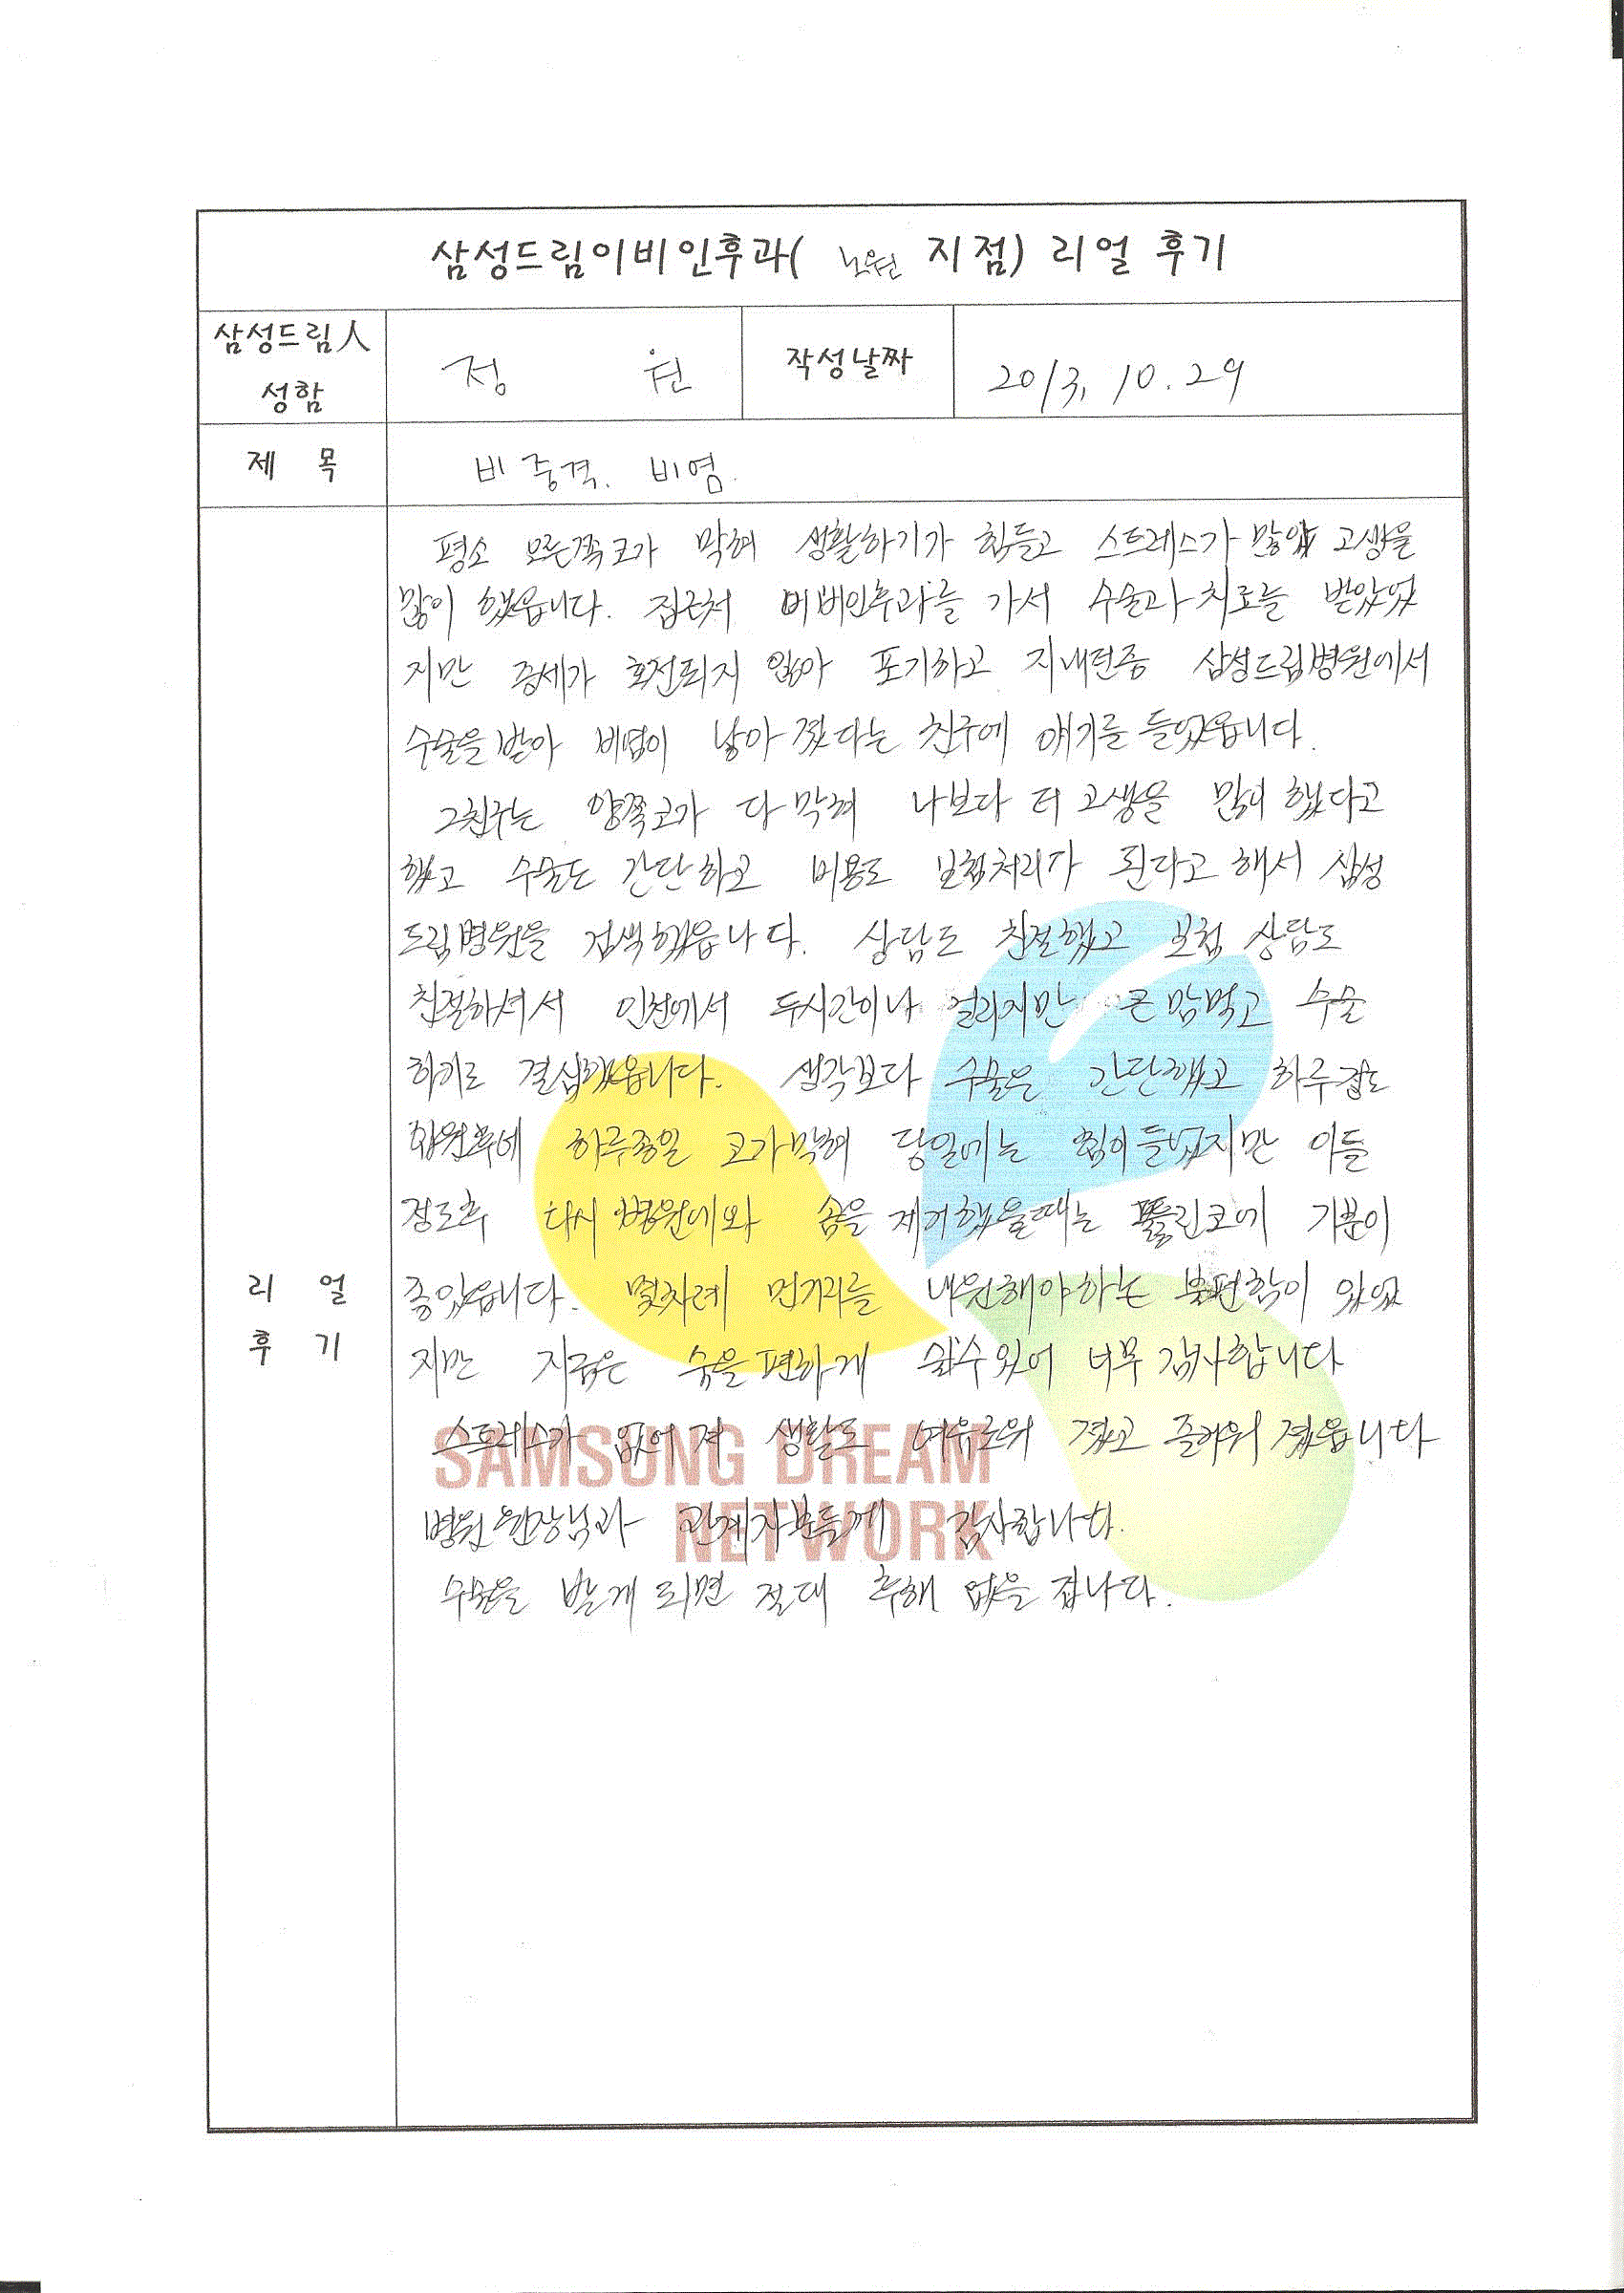 삼성드림이비인후과( 노원 지점) 리얼 후기
삼성드림人 성함
정 원
작성날짜
2013. 10. 29
제 목
비중격. 비염.
리 얼 후 기
평소 오른쪽코가 막혀 생활하기가 힘들고 스트레스가 많았 고생을
많이 했읍니다. 집근처 이비인후과를 가서 수술과 치료를 받았었
지만 증세가 호전되지 않아 포기하고 지내던중 삼성드림병원에서
수술을 받아 비염이 낳아 졌다는 친구에 얘기를 들었읍니다.
그친구는 양쪽코가 다 막혀 나보다 더 고생을 많이 했다고
했고 수술도 간단하고 비용도 보험처리가 된다고 해서 삼성
드림병원을 검색했읍니다. 상담도 친절했고 보험 상담도
친절하셔서 인천에서 두시간이나 걸리지만 큰 맘먹고 수술
하기로 결심했읍니다. 생각보다 수술은 간단했고 하루정도
입원후에 하루종일 코가막혀 당일에는 힘이들었지만 이틀
정도후 다시 병원에와 솜을 제거했을때는 뚫린코에 기분이
좋았읍니다. 몇차례 먼거리를 내원해야하는 불편함이 있었
지만 지금은 숨을 편하게 쉴수있어 너무 감사합니다
스트레스가 없어져 생활도 여유로워 졌고 즐거워 졌읍니다
병원 원장님과 관계자분들께 감사합니다.
수술을 받게 되면 절대 후해 없을 겁니다.
SAMSUNG DREAM
NETWORK